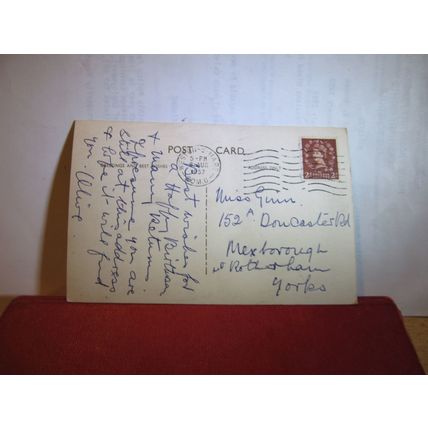 POST CARD
5-PM
AUG
1957
2D 2D
Best wishes for
a Happy Birthday
& many Returns.
I presume you are
still at this address
& hope it will find
you. Olive
Miss Gunn
152A Doncaster Rd
Mexborough
Nr Rotherham
Yorks